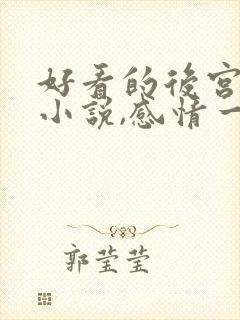 好看的後宮
小說,感情一
郭莹莹